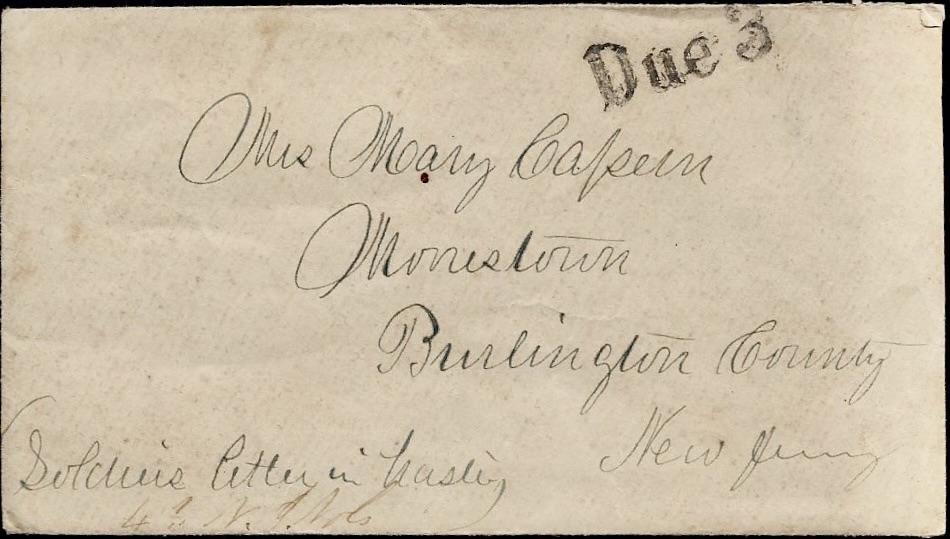 Due 3
Mrs Mary Capern
Morrestown
Burlington County
New Jersey
Soldiers letter in hasty
4th N. J. Vols